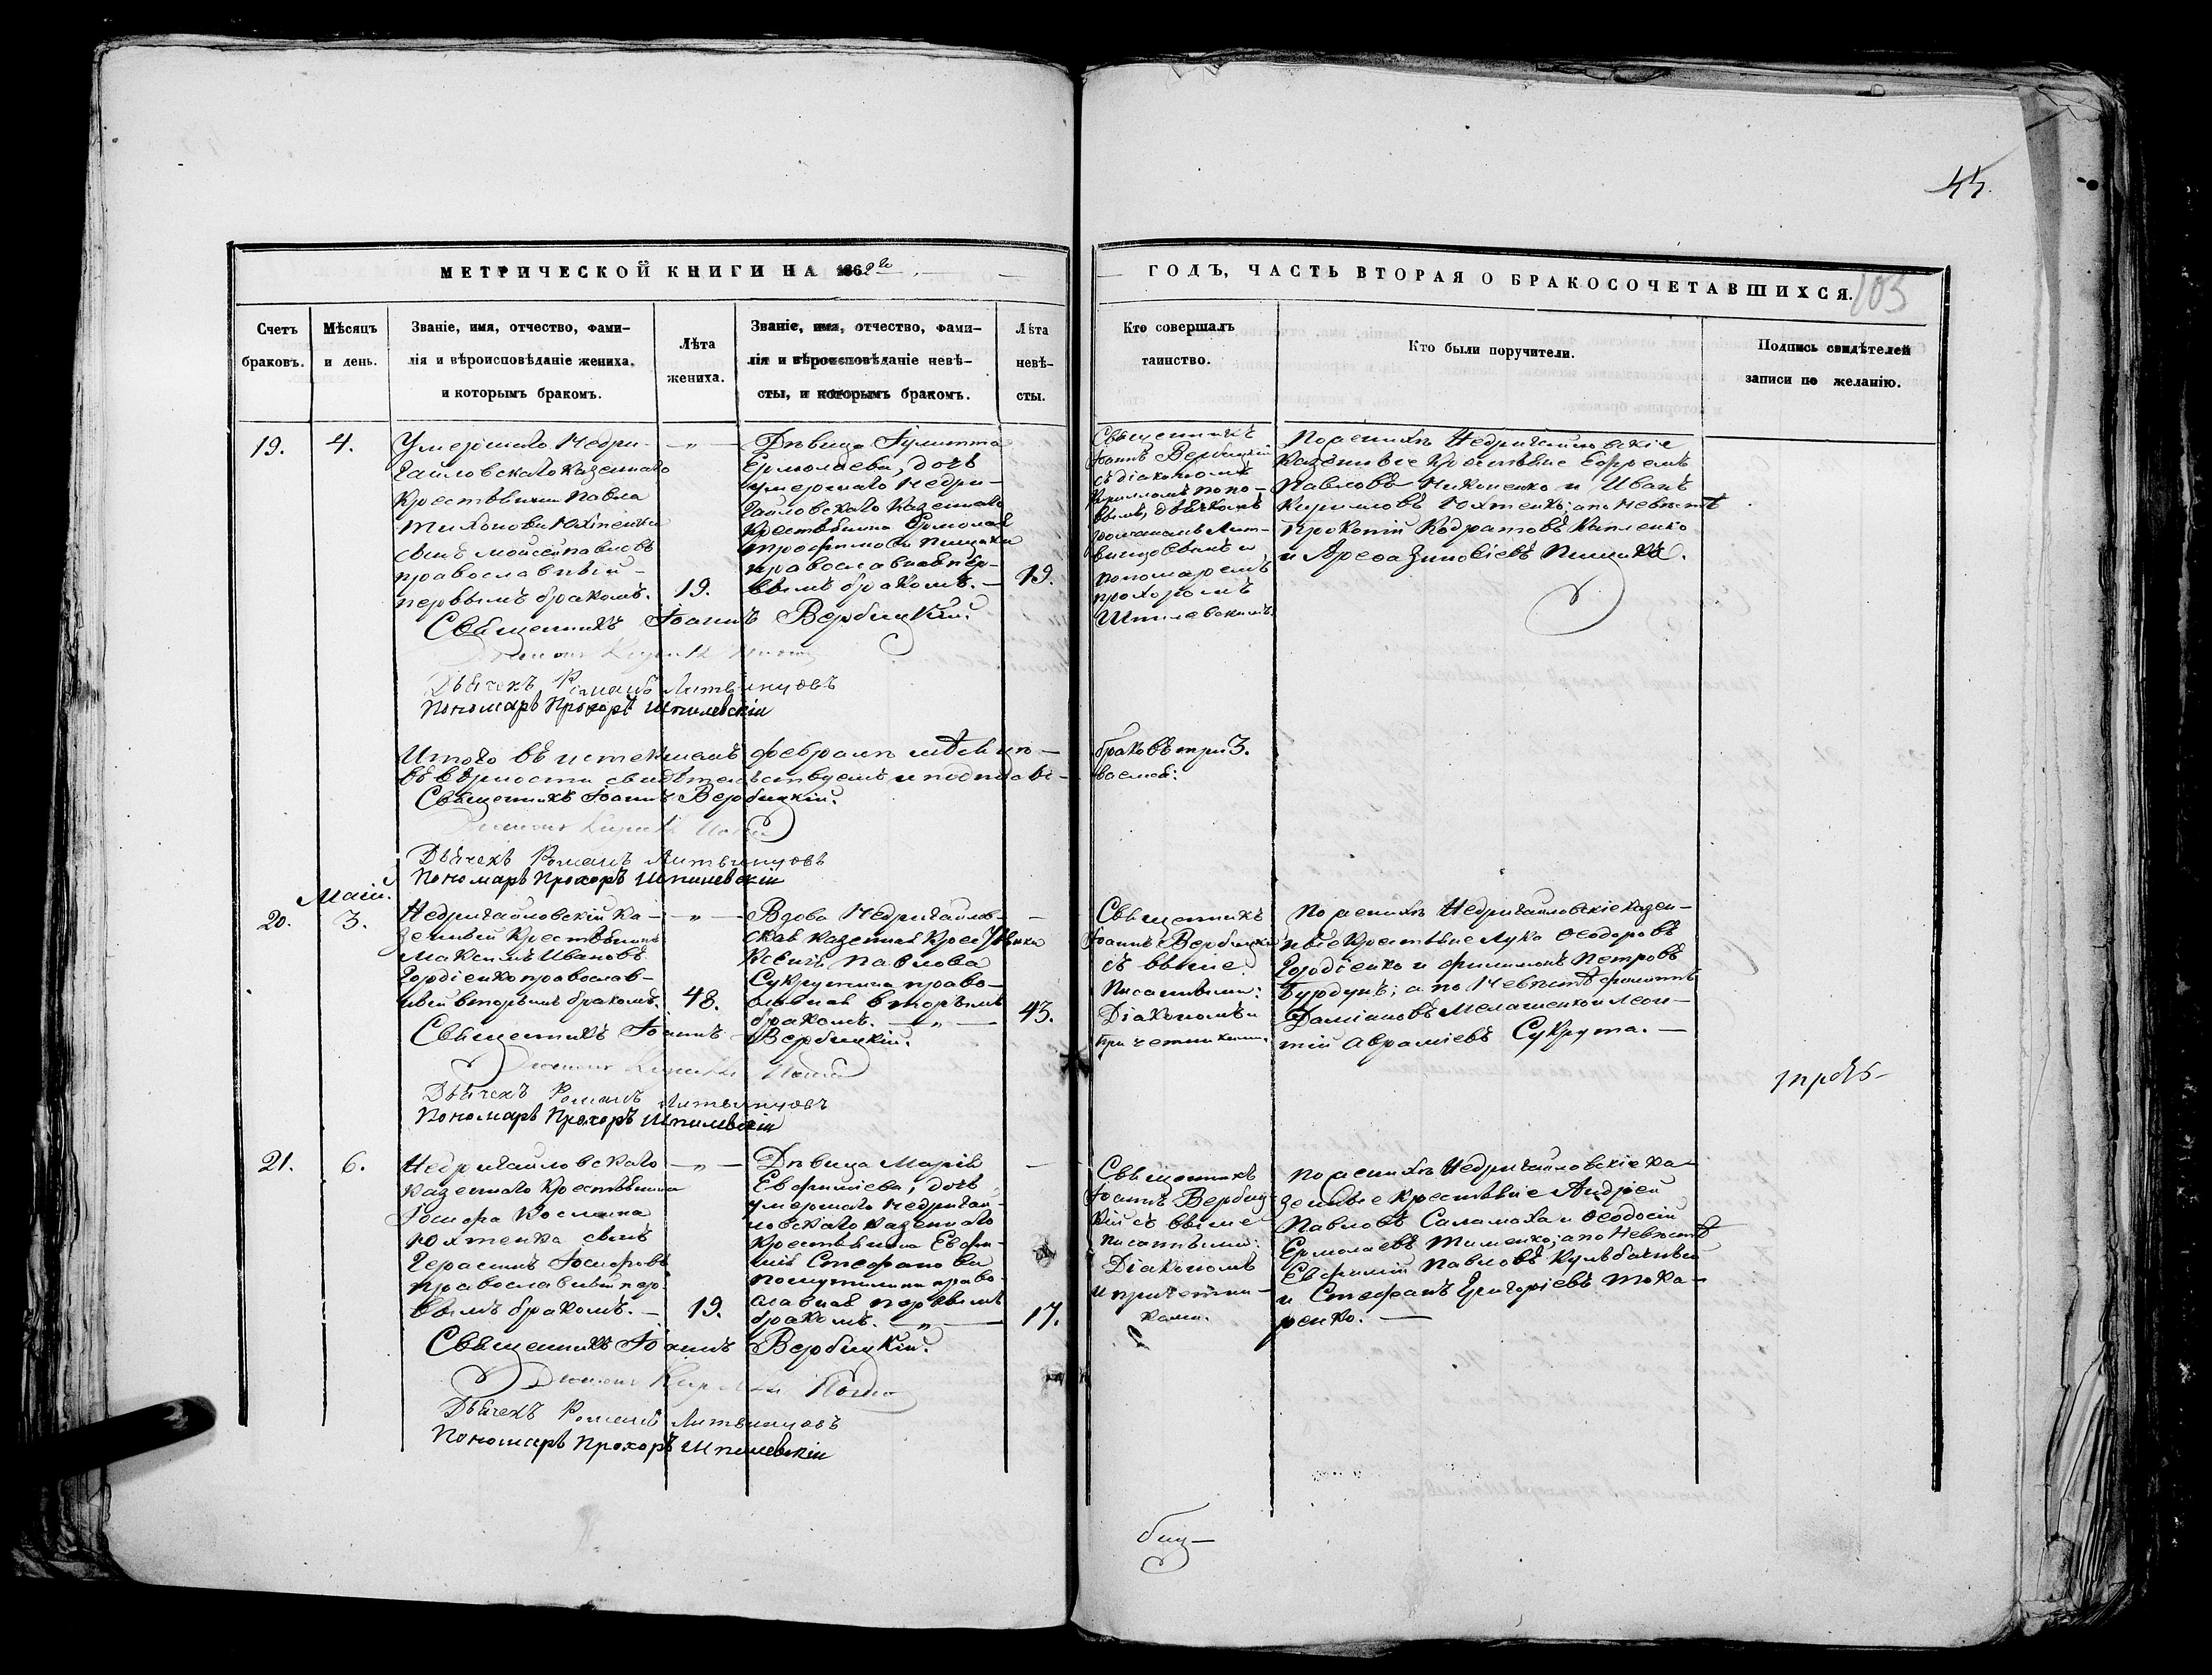 44.
МЕТРИЧЕСКОЙ КНИГИ НА 1862го
ГОДЪ, ЧАСТЬ ВТОРАЯ О БРАКОСОЧЕТАВШИХСЯ.
103
Счетъ
браковъ.
Мѣсяцъ
и день.
Званіе, имя, отчество, фами-
лія и вѣроисповѣданіе жениха.
и которымъ бракомъ.
Лѣта
жениха.
Званіе, имя, отчество, фами-
лія и вѣроисповѣданіе невѣ-
сты, и которымъ бракомъ.
Лѣта
невѣ-
сты.
Кто совершалъ
таинство.
Кто были поручители.
Подпись свидѣтелей
записи по желанію.
19.
4.
Умершаго Недри-
гайловскаго казеннаго
крестьянина Павла
Тихонова Юхтенка
сынъ Мойсей Павловъ
православный
первымъ бракомъ.
19.
Дѣвица Іулитта
Ермолаева, дочь
умершаго Недри-
гайловскаго казеннаго
крестьянина Ермолая
Трофимова Пищики
православная пер-
вымъ бракомъ.
19.
Священникъ
Іоаннъ Вербицкій
съ діакономъ
Кирилломъ Попо-
вымъ, дьячкомъ
Романомъ Лит-
винцовымъ и
пономаремъ
Прохоромъ
Шпилевскимъ
По женихѣ Недригайловскіе
казенные крестьяне Ефремъ
Павловъ Никоненко и Иванъ
Кириловъ Юхтенко; а по невѣстѣ
Прокопій Кодратовъ
и Арефа Зиновіевъ Пищика.
Священникъ Іоаннъ Вербицкій.
Діаконъ Кириллъ Поповъ
Дьячекъ Романъ Литвинцовъ
Пономарь Прохоръ Шпилевскій
Итого въ истекшемъ февралѣ мѣсяцѣ браковъ три 3.
въ вѣрности свидѣтельствуемъ и подписы- ваемся:
Священникъ Іоаннъ Вербицкій.
Діаконъ Кириллъ Поповъ
Дьячекъ Романъ Литвинцовъ
Пономарь Прохоръ Шпилевскій
Маій.
20.
3.
Недригайловскій ка-
зенный крестьянинъ
Максимъ Ивановъ
Гордіенко православ-
ный вторымъ бракомъ.
48.
Вдова Недригайлов-
ская казенная крестьянка
Ксенія Павлова
Сукрутина право-
славная вторымъ
бракомъ.
43.
Священникъ
Іоаннъ Вербицкій
съ выше
писанными:
Діакономъ и
причетниками.
По женихѣ Недригайловскіе казен-
ные крестьяне Лука Ѳеодоровъ
Гордіенко и Филимонъ Петровъ
Бурдунъ; а по невѣстѣ Филиппъ
Даміановъ Мелашенко и Леон-
тій Авраміевъ Сукрута.
Священникъ Іоаннъ Вербицкій.
Діаконъ Кириллъ Поповъ
Дьячекъ Романъ Литвинцовъ
Пономарь Прохоръ Шпилевскій
21.
6.
Недригайловскаго
казеннаго крестьянина
Іосифа Космина
Юхтенка сынъ
Герасимъ Іосифовъ
православный пер-
вымъ бракомъ.
19.
Дѣвица Марія
Евфиміева, дочь
умершаго Недригай-
ловскаго казеннаго
крестьянина Евфи-
мія Стефанова
православная первымъ
бракомъ.
17.
Священникъ
Іоаннъ Вербиц-
кій съ выше
писанными:
Діакономъ
и причетни-
ками.
По женихѣ Недригайловскіе ка-
зенные крестьяне Андрей
Павловъ Саламаха и Ѳеодосій
Ермолаевъ Тименко; а по невѣстѣ
Евфимій Павловъ Кулѣбачный
и Стефанъ Григоріевъ Тока-
ренко.
Священникъ Іоаннъ Вербицкій.
Діаконъ Кириллъ Поповъ
Дьячекъ Романъ Литвинцовъ
Пономарь Прохоръ Шпилевскій
биц-